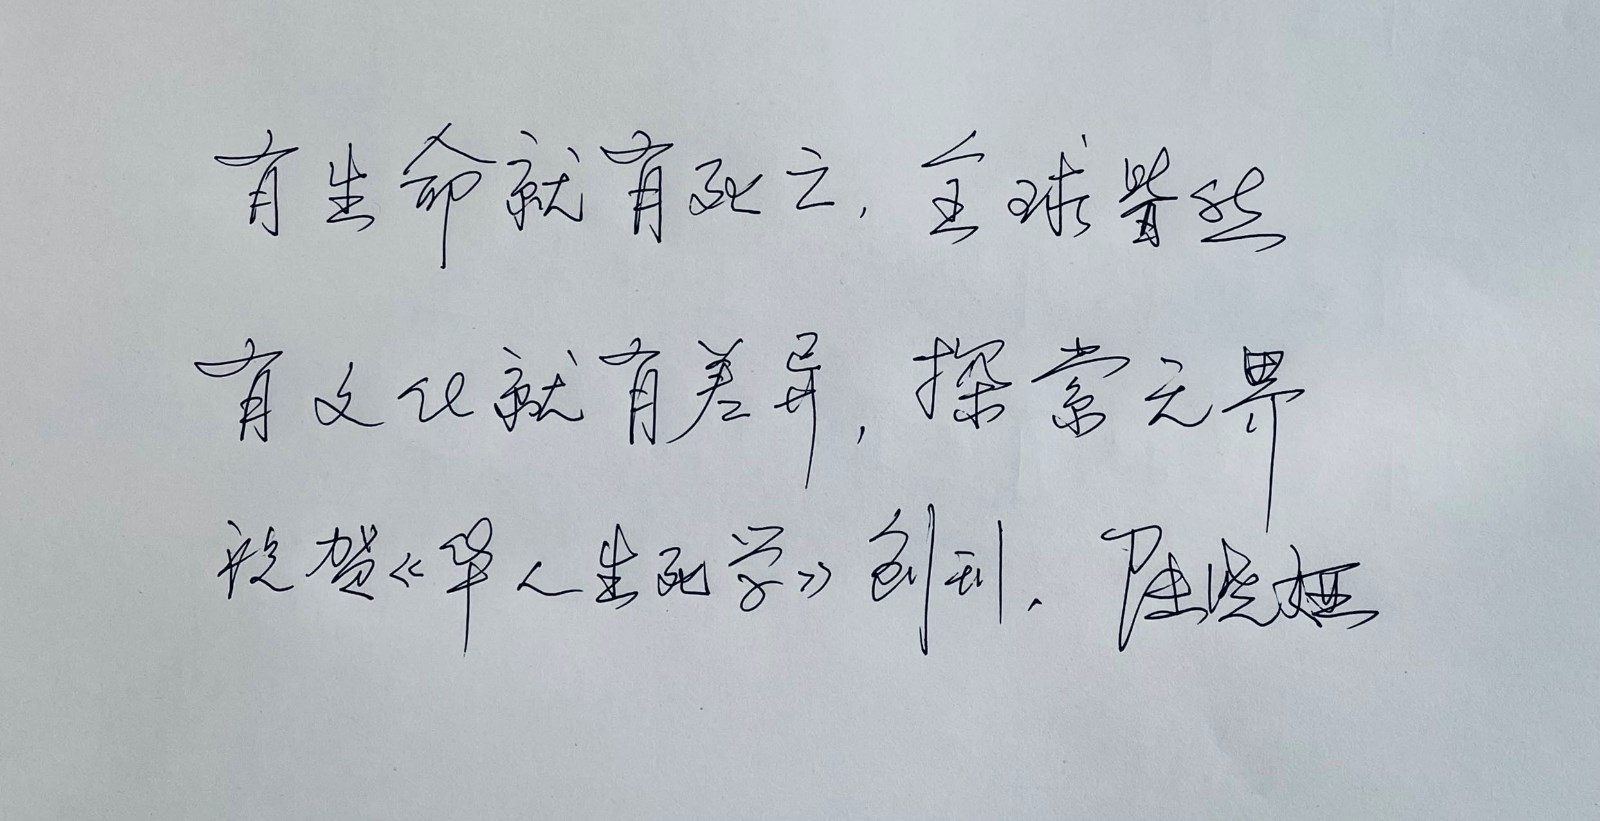 有生命就有死亡，全球皆然
有文化就有差异，探索无界
祝贺《华人生死学》创刊. 陆晓娅